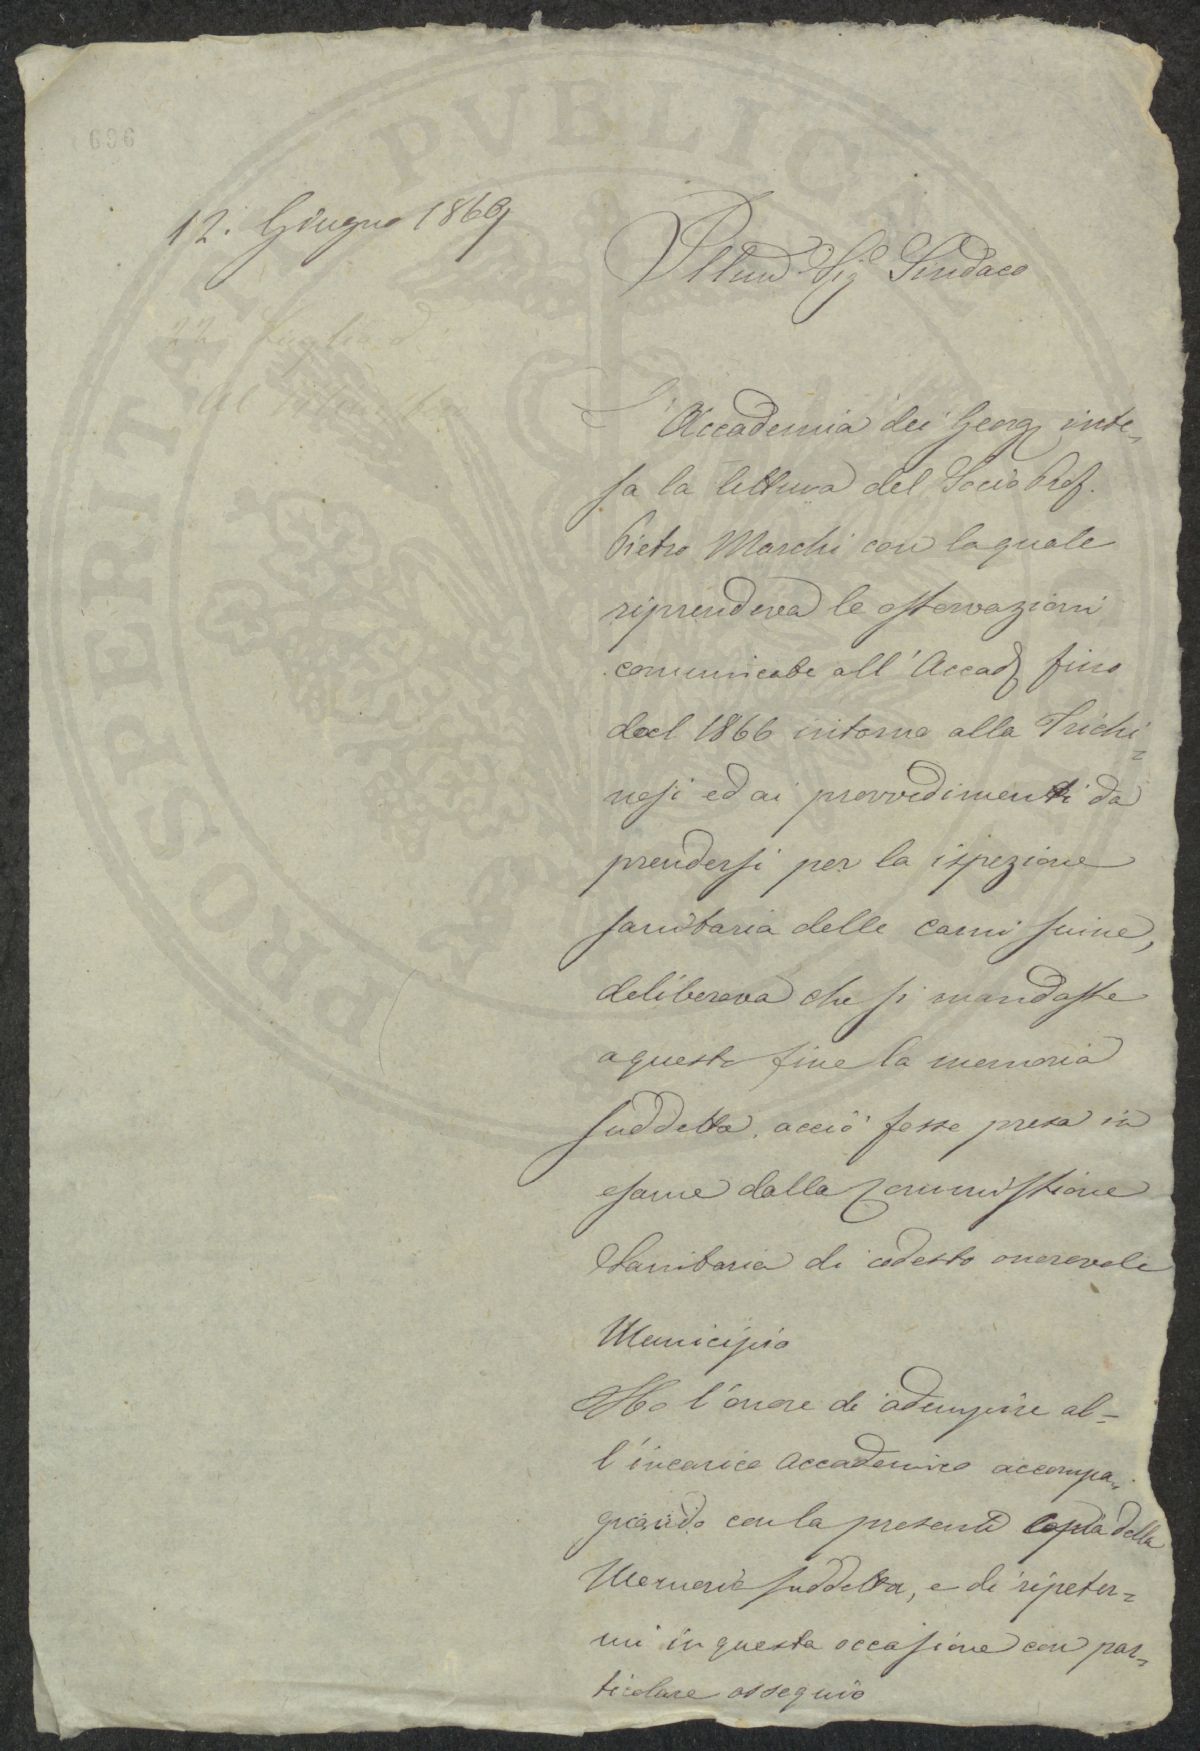 696
12. Giugno 1869
Illmo. Sig.e Sindaco
22 Luglio d
L'Accademia dei Georg. inte-
sa la lettura del Socio Prof.
Pietro Marchi con laquale
riprendeva le osservazioni
comunicate all'Accad. fino
dal 1866 intorno alla Trichi-
nesi ed ai provvedimenti da
prendersi per la ispezione
sanitaria delle carni suine,
deliberava che si mandasse
a questo fine la memoria
suddetta, acciò fosse presa in
esame dalla Commissione
Sanitaria di codesto onorevole
Municipio
Ho l'onore di adempire al-
l'incarico Accademico accompa-
gnando con la presente copia della
Memoria suddetta, e di ripeter-
mi in questa occasione con par-
ticolare ossequio
PROSPERITATI PVBLICAE